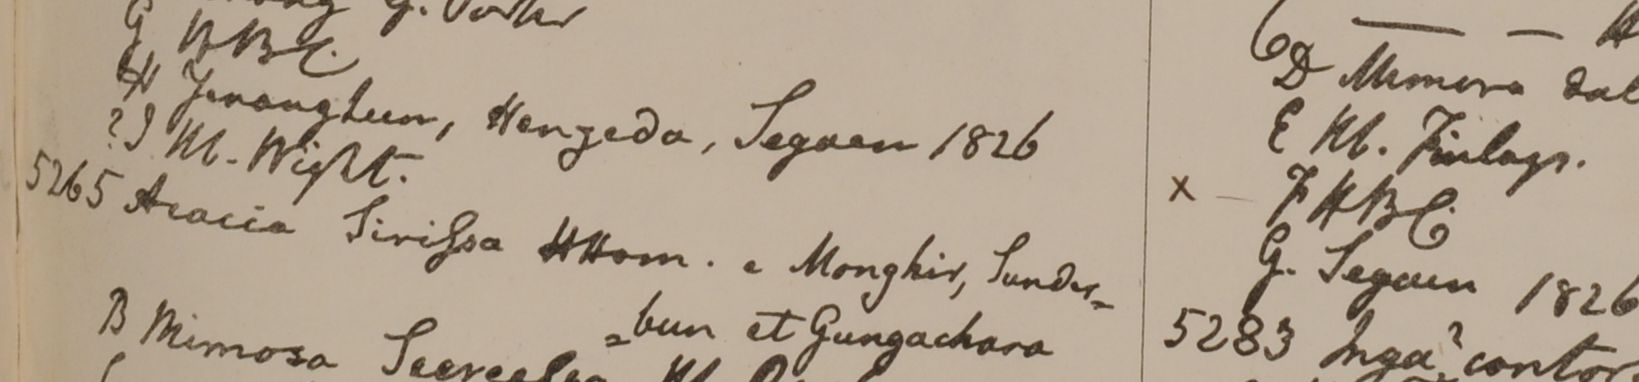 G. Porter
G HBC.
H Yenanghuen, Hengeda, Segaen 1826
? I Hb. Wight.
5265 Acacia Sirissa HHam. e Monghir, Sunder=
=bun et Gungachara
B Mimosa
D Mimosa
E Hb. Finlays.
x — F HBC.
G. Segaen 1826
5283 Inga? contor